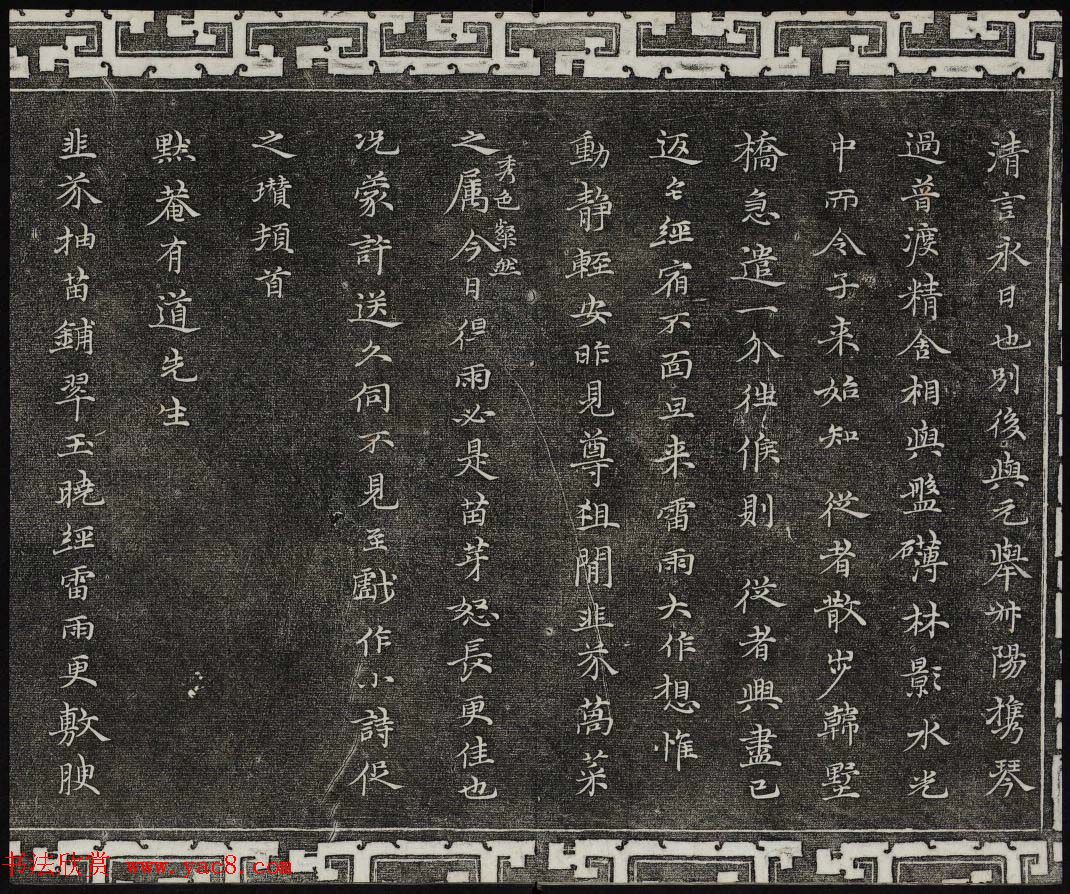 清言永日也別後與元舉艸陽携琴
過普渡精舍相與盤礴林影水光
中而令子来始知 従者散步韓墅
橋急遣一介往候則 従者興盡已
返矣經宿不面旦来雷雨大作想惟
動静輕安昨見尊俎間韭芥萵菜
之属秀色粲然今日得雨必是苗芽怒長更佳也
况蒙許送久伺不見至戲作小詩促
之瓚頓首
黙菴有道先生
韭芥抽苗鋪翠玉曉經雷雨更敷腴
书法欣赏 www.yac8.com